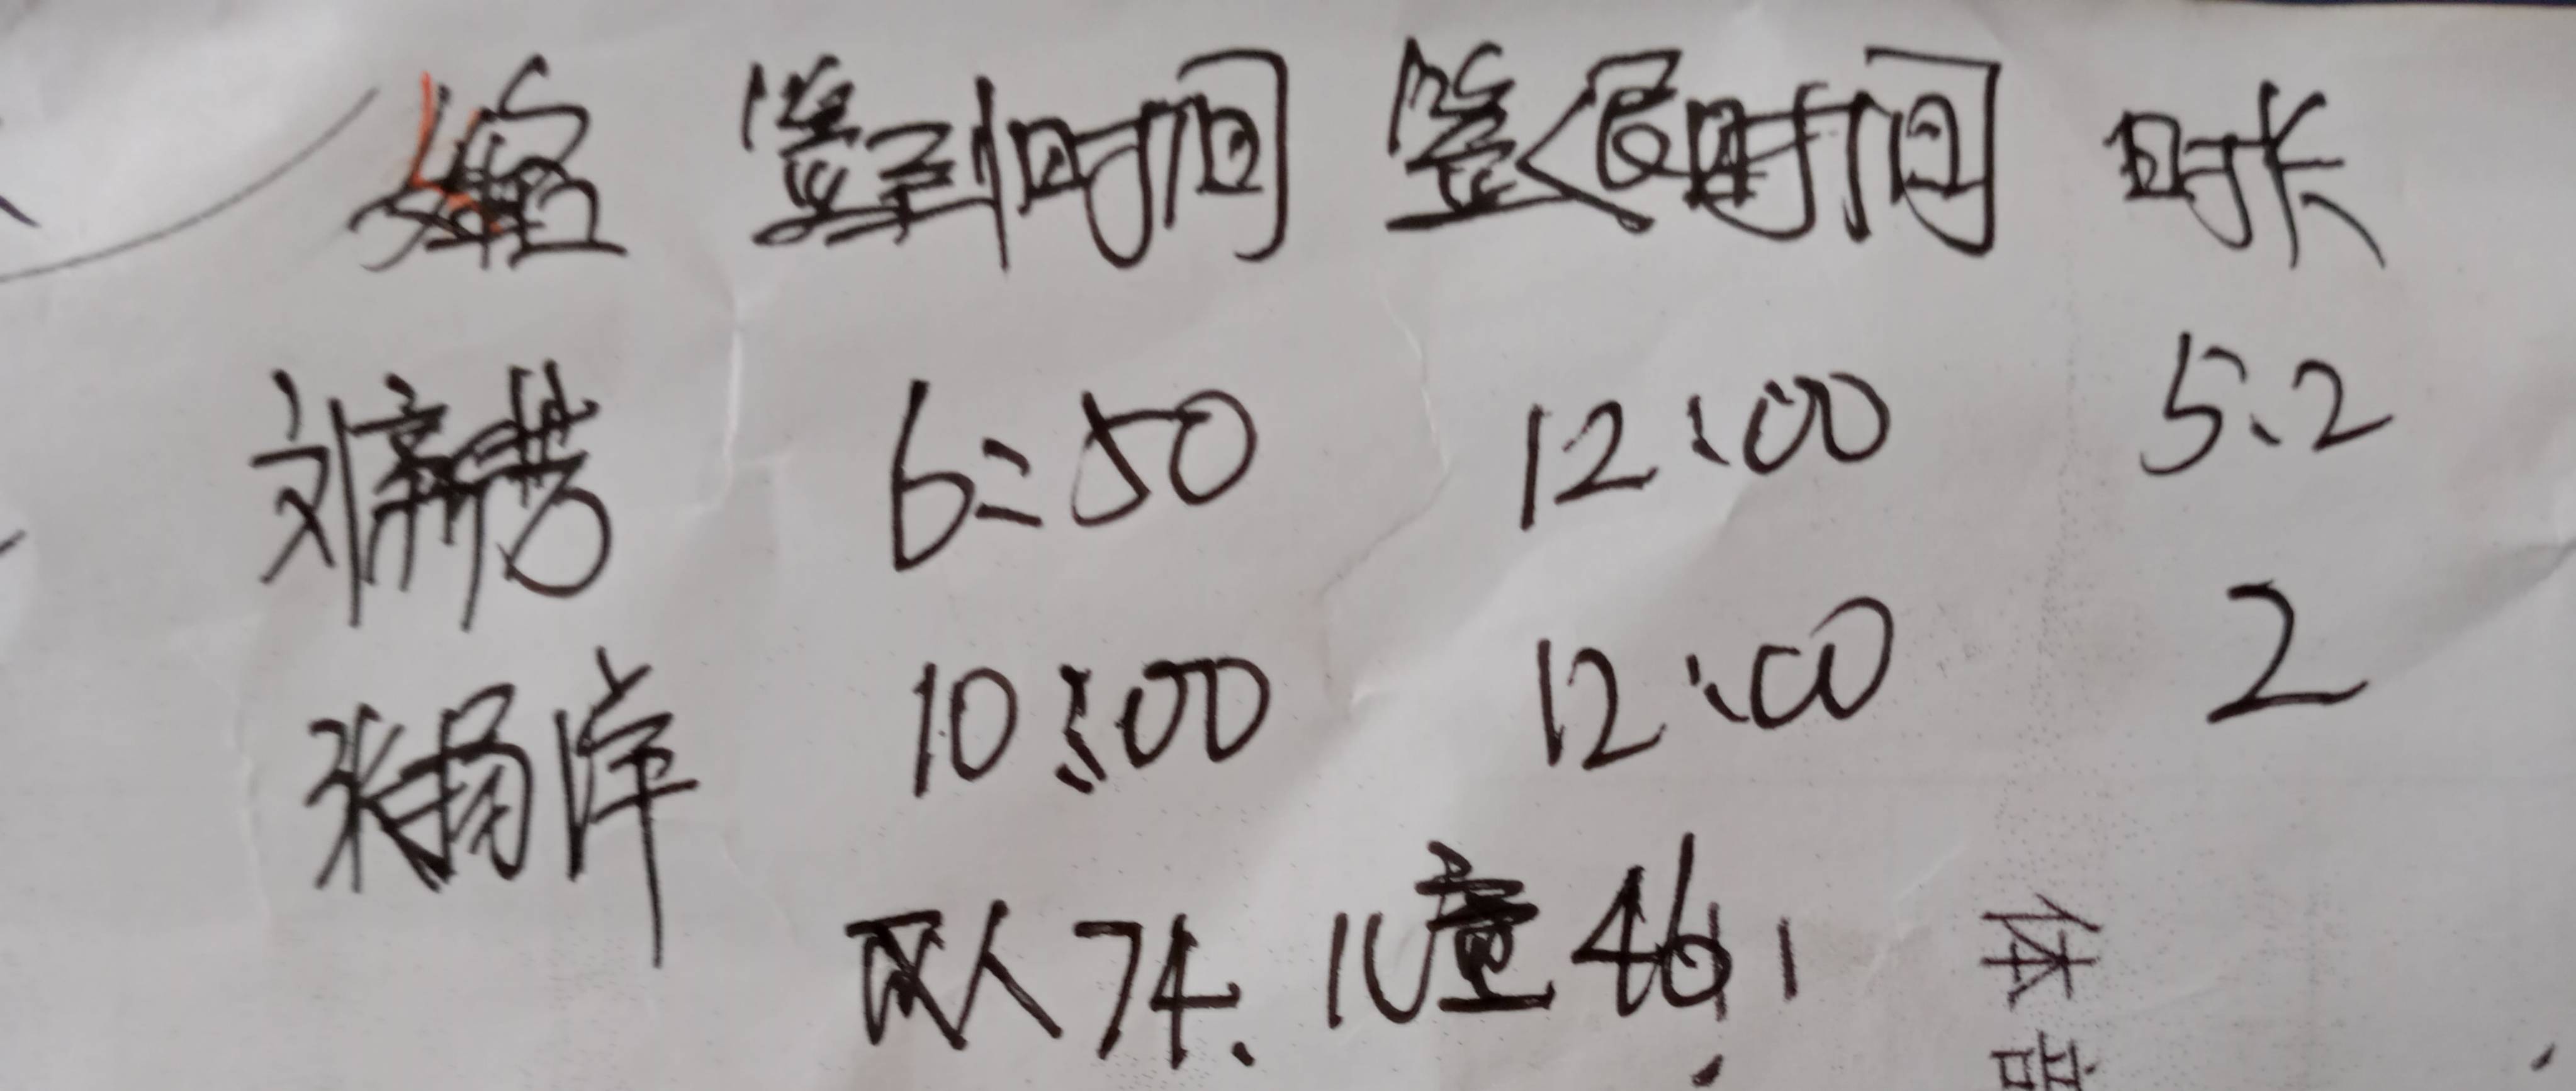 签到时间 签退时间 时长
刘新芳 6:50 12:00 5.2
张扬洋 10:00 12:00 2
成人74. 儿童46
体